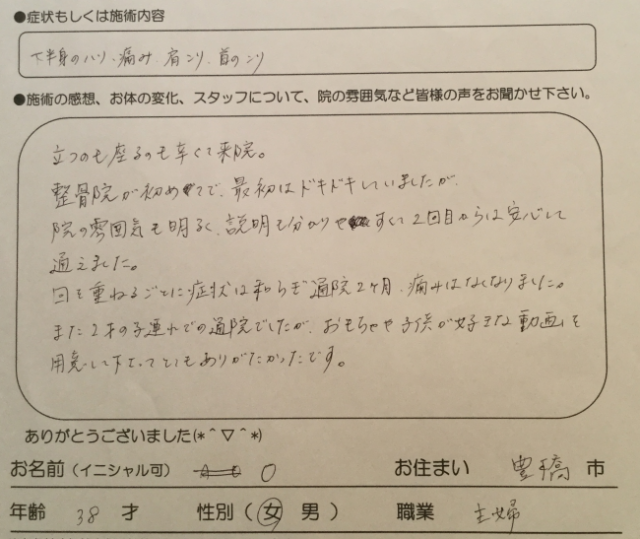 ●症状もしくは施術内容
下半身のハリ、痛み、肩こり、首のこり
●施術の感想、お体の変化、スタッフについて、院の雰囲気など皆様の声をお聞かせ下さい。
立つのも座るのも辛くて来院。
整骨院が初めてで、最初はドキドキしていましたが、
院の雰囲気も明るく、説明も分かりやすくて2回目からは安心して
通えました。
回を重ねるごとに症状は和らぎ通院2ヶ月、痛みはなくなりました。
また2才の子連れでの通院でしたが、おもちゃや子供が好きな動画を
用意して下さってとてもありがたかったです。
ありがとうございました(*^▽^*)
お名前（イニシャル可） O お住まい 豊橋 市
年齢 38 才 性別（ 女 男 ） 職業 主婦